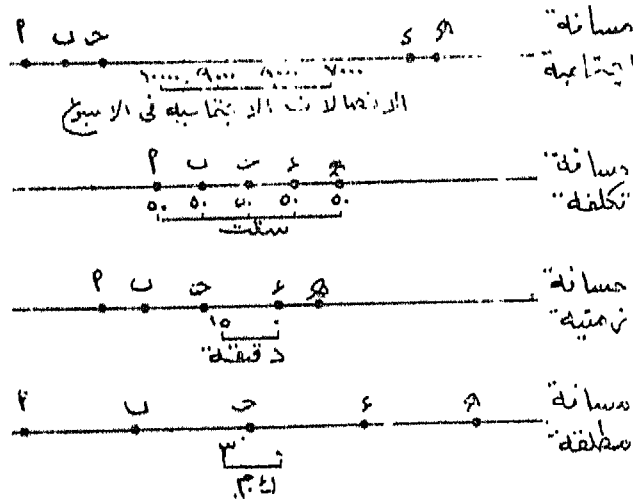 مسافة اجتماعية
م ب ح ء ھ
١٠٠٠٠ ٩٠٠٠ ٨٠٠٠ ٧٠٠٠
الاتصالات الاجتماعية في الاسبوع
مسافة تكلفة
م ب ح ء ھ
٥٠ ٥٠ ٥٠ ٥٠ ٥٠
سنت
مسافة زمنية
م ب ح ء ھ
١٥ ٠
دقيقة
مسافة مطلقة
م ب ح ء ھ
٣٠
ك.م.